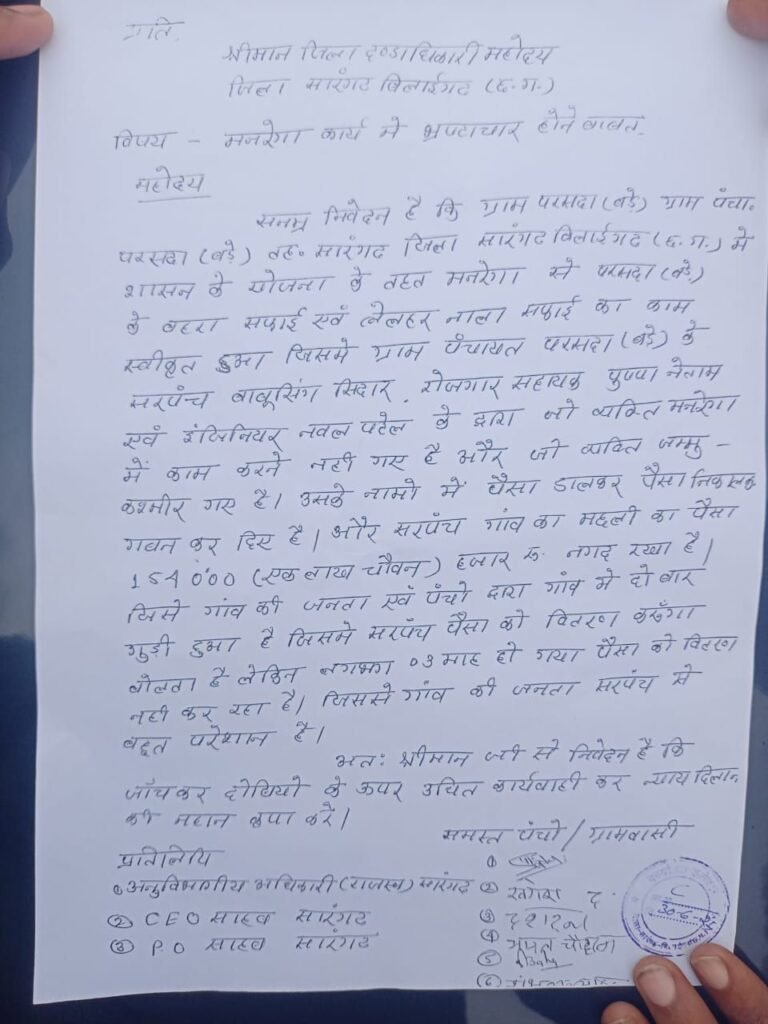 प्रति,
श्रीमान जिला दण्डाधिकारी महोदय
जिला सारंगढ बिलाईगढ (छ.ग.)
विषय - मनरेगा कार्य मे भ्रष्टाचार होने बाबत.
महोदय
सनम्र निवेदन है कि ग्राम परसदा (बड़े) ग्राम पंचा.
परसदा (बड़े) तह. सारंगढ जिला सारंगढ बिलाईगढ (छ.ग.) मे
शासन के योजना के तहत मनरेगा से परसदा (बड़े)
के बहरा सफाई एवं लेलहर नाला सफाई का काम
स्वीकृत हुआ जिसमे ग्राम पंचायत परसदा (बड़े) के
सरपंच बाबूसिंग सिदार, रोजगार सहायक पुष्पा नेताम
एवं इंजिनियर नवल पटेल के द्वारा जो व्यक्ति मनरेगा
में काम करने नही गए है और जो व्यक्ति जम्मु -
कश्मीर गए है। उसके नामो में पैसा डालकर पैसा निकालकर
गबन कर दिए है। और सरपंच गांव का मछली का पैसा
154000 (एक लाख चौवन) हजार रू. नगद रखा है।
जिसे गांव की जनता एवं पंचो द्वारा गांव मे दो बार
गुड़ी हुआ है जिसमे सरपंच पैसा को वितरण करूँगा
बोलता है लेकिन लगभग 03 माह हो गया पैसा को वितरण
नही कर रहा है। जिससे गांव की जनता सरपंच से
बहुत परेशान है।
अतः श्रीमान जी से निवेदन है कि
जाँच कर दोषियो के ऊपर उचित कार्यवाही कर न्याय दिलाने
की महान कृपा करें।
समस्त पंचो / ग्रामवासी
प्रतिलिपि
① अनुविभागीय अधिकारी (राजस्व) सारंगढ
② CEO साहब सारंगढ
③ P.O साहब सारंगढ
①
②
③
④ भुपत चौहान
⑤
⑥